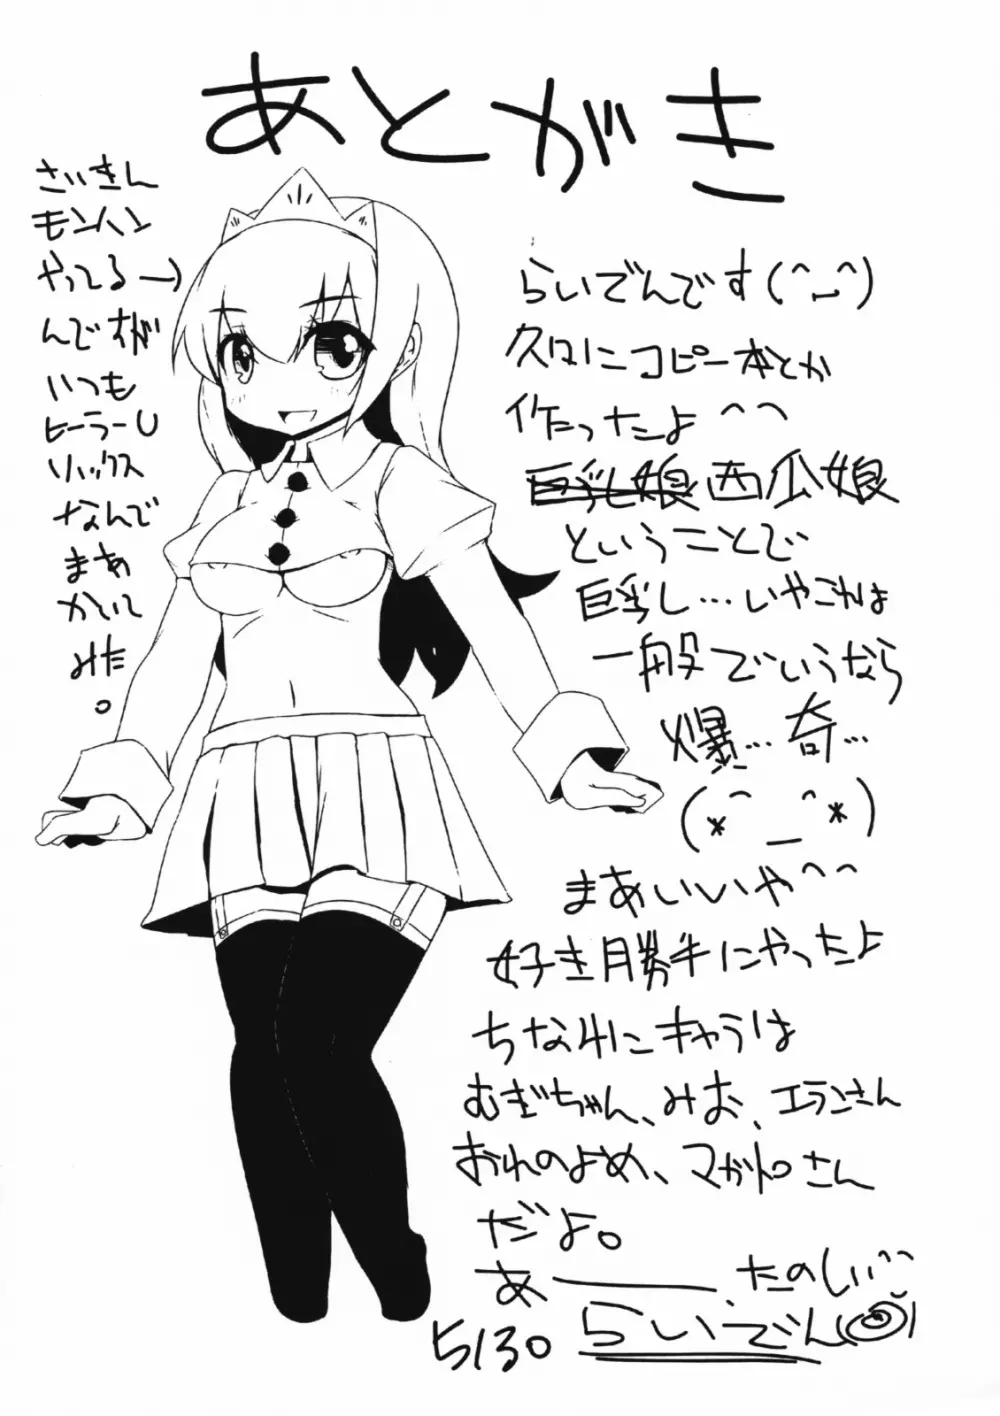 あとがき
さいきん
モンハン
やってるー
んですが
いつも
ヒーラーU
ソックス
なんで
まあ
かいて
みた。
らいでんです(^_^)
久々にコピー本とか
作ったよ^^
巨乳娘 西瓜娘
ということで
巨乳し…いやこれは
一般でいうなら
爆…奇…
(*^_^*)
まあいいや^^
好き勝手にやったよ
ちなみにキャラは
むぎちゃん、みお、エランさん
おれのよめ、マガトロさん
だよ。
あー、たのしい^^
5/30 らいでん